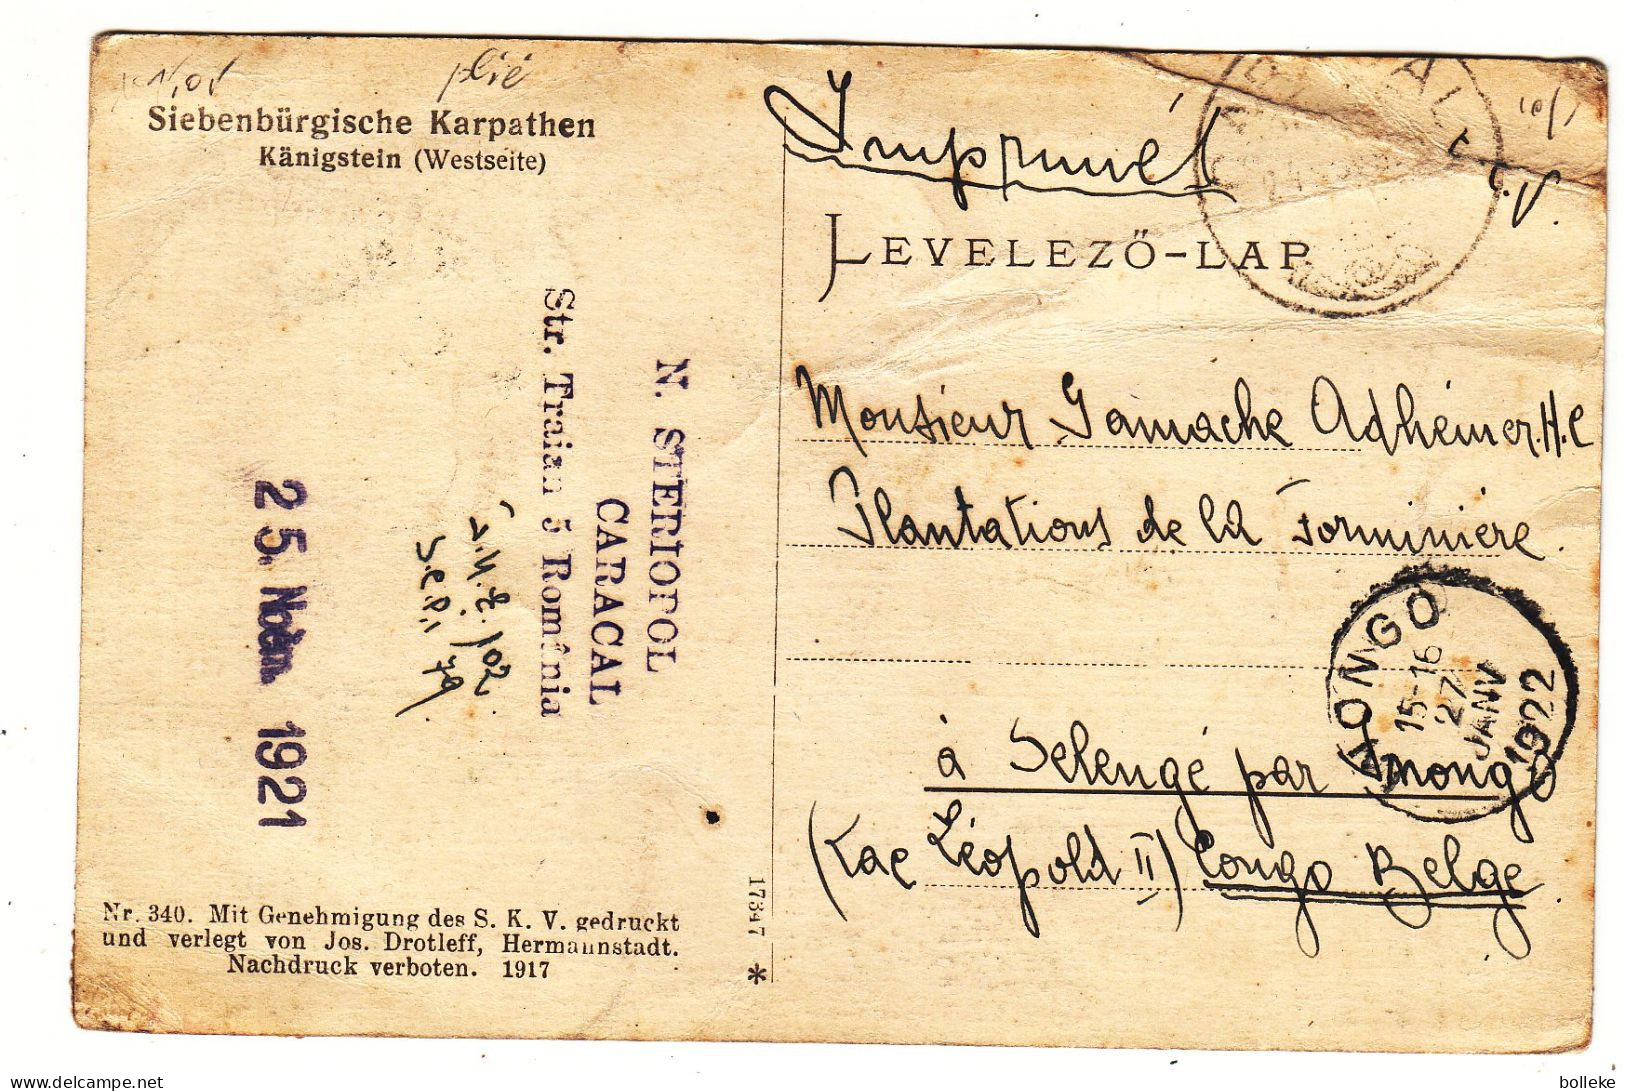 plié
Siebenbürgische Karpathen
Känigstein (Westseite)
N. STERIOPOL
CARACAL
Str. Traian 5 Romînia
25. Noem 1921
Nr. 340. Mit Genehmigung des S. K. V. gedruckt
und verlegt von Jos. Drotleff, Hermannstadt.
Nachdruck verboten. 1917
17347
*
Imprimél
T.V.
LEVELEZŐ-LAP
Monsieur Gamache Adhémer. H. C
Plantations de la Forminiere.
à Selengé par Inongo
(Lac Léopold II) Congo Belge
INONGO
15-16
27
JANV
1922
delcampe.net
bolleke